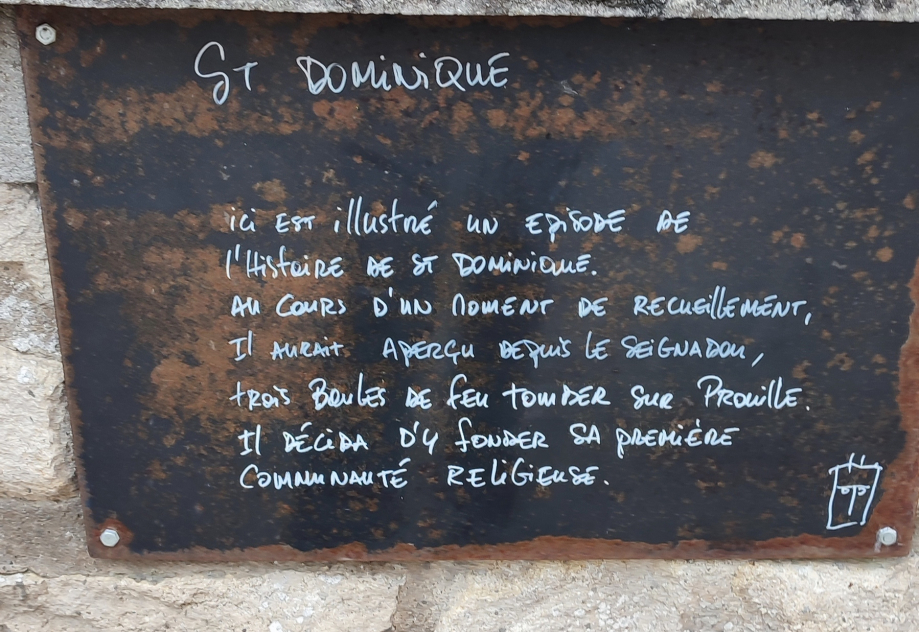 St DOMINIQUE
ici EST illustré UN EPISODE DE
l'Histoire DE ST DOMINIQUE.
AU COURS D'UN MOMENT DE RECUEILLEMENT,
Il AURAIT APERÇU DEPUIS LE SEIGNADOU,
trois Boules DE feu TOMBER SUR PROUILLE.
Il DÉCIDA D'Y fONDER SA PREMIÈRE
COMMUNAUTÉ RELIGIEUSE.